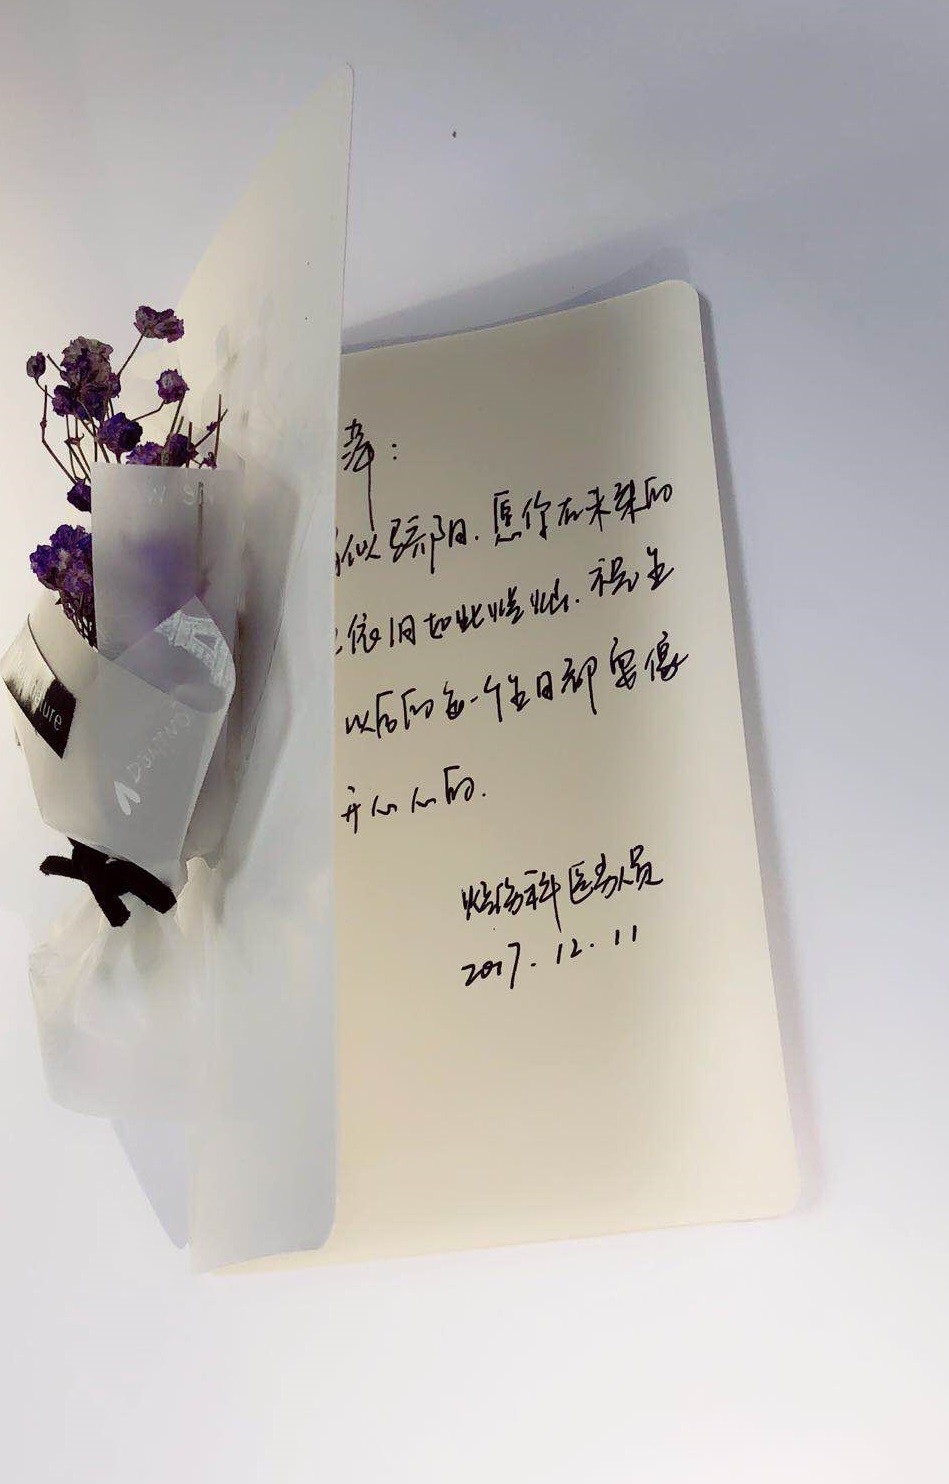 似骄阳.愿你在未来的
依旧如此灿烂.祝生
以后的每一个生日都要像
开心心的.
烧伤科医务人员
2017.12.11
ure